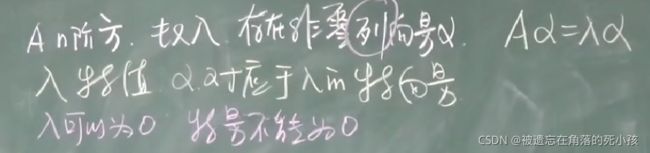 A n阶方. 数λ 存在非零列向量α. Aα=λα
λ 特征值 α对应于λ的特向量
λ可以为0 特量不能为0
CSDN @被遗忘在角落的死小孩